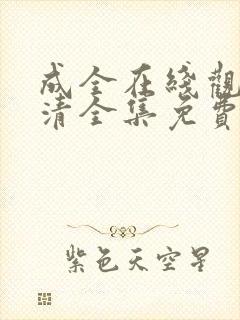 成全在綫觀
清全集免費
紫色天空星